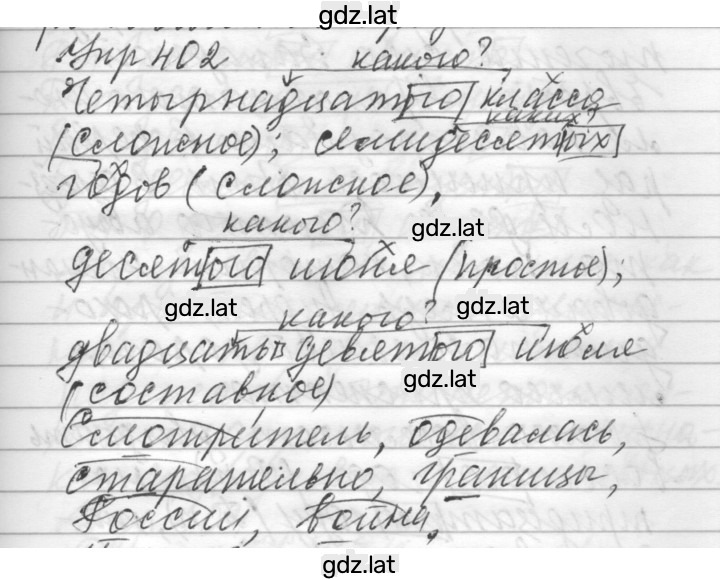 gdz.lat
Упр 402 какого?
Четырнадцатого класса
каких?
(сложное); семидесятых
годов (сложное),
какого?
gdz.lat
десятого июля (простое);
gdz.lat
gdz.lat
какого?
двадцать девятого июля
gdz.lat
(составное)
Смотритель, одевалась,
старательно, границы,
России, война,
gdz.lat